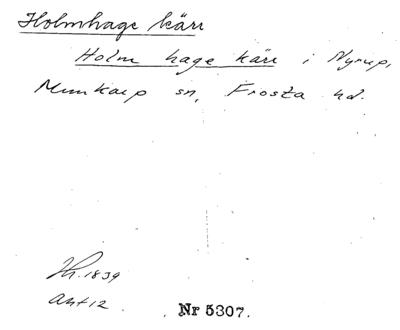 Holmhage kärr
Holm hage kärr i Nyrup,
Munkarp sn, Frosta hd.
1839
ant 12
Nr 5307.